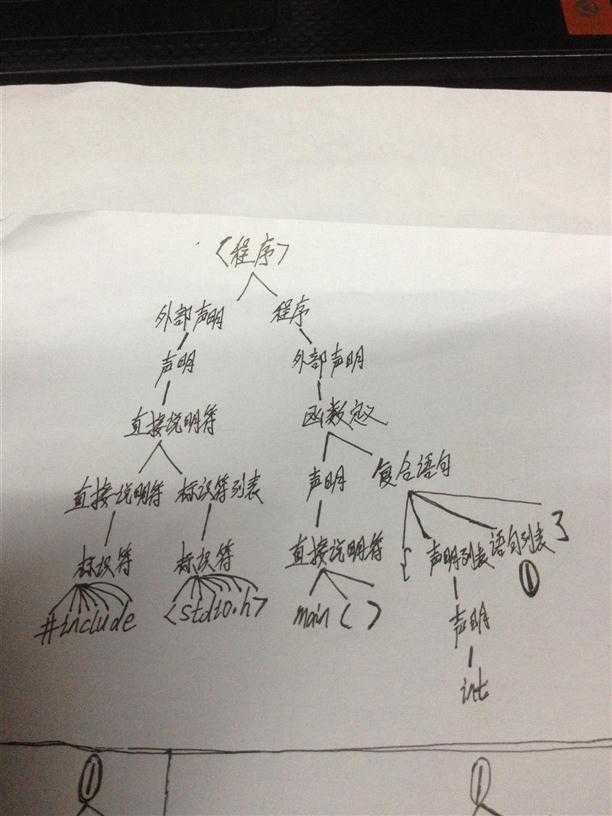 <程序>
外部声明 程序
声明 外部声明
直接说明符 函数定义
直接说明符 标识符列表 声明 复合语句
标识符 标识符 直接说明符 { 声明列表 语句列表 }
#include <stdio.h> main ( ) ①
声明
int
① ①